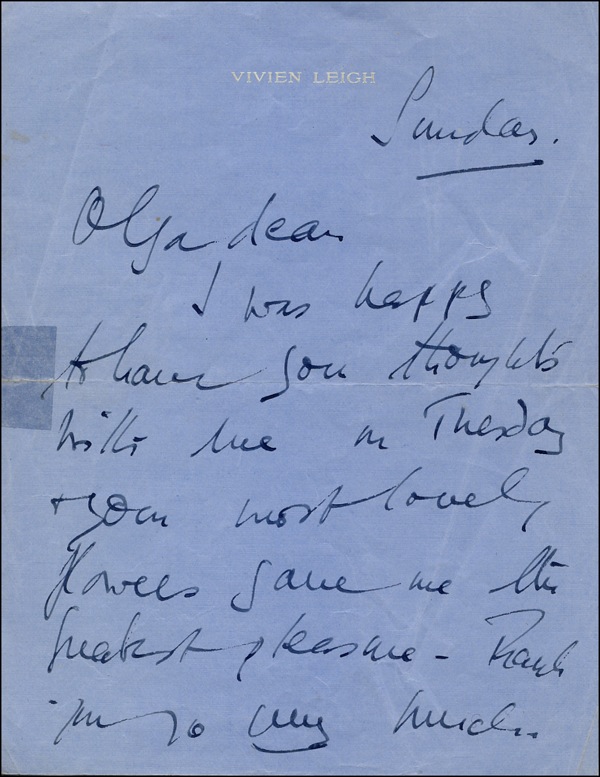 VIVIEN LEIGH
Sunday.
Olga dear
I was happy
to have your thoughts
with me on Tuesday
+ your most lovely
flowers gave me the
greatest pleasure – Thank
you so very much.